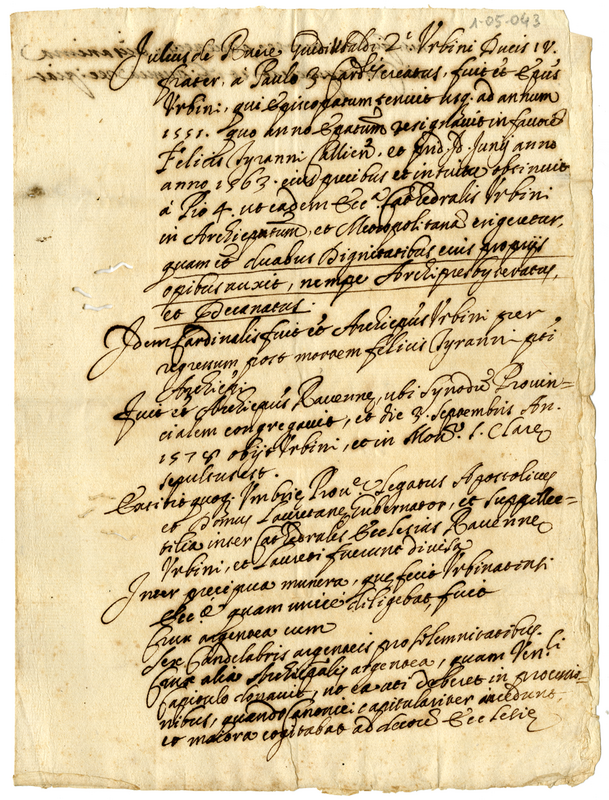 1-05-043
Julius de Ruere Guidiubaldi 2.i Urbini Ducis IV.
frater, a Paulo 3 Card.s creatus, fuit et Ep̃us
Urbini, qui Episcopatum tenuit usq. ad annum
1551. quo anno Ep̃atum resignavit in favore
Felicis Tyranni Callien., et Junij anno
anno 1563. eius precibus et intuitu obtinuit
à Pio 4. ut eadem Ecc.a Cathedralis Urbini
in Archiep̃atum, et Metropolitanã erigeretur,
quam et duabus Dignitatibus eius proprijs
opibus auxit, nempe Archipresbyteratus,
et Decanatus.
Idem Cardinalis fuit et Archiep̃us Urbini per
regressum post mortem Felicis Tyranni p̃ti
Archiep̃i
Fuit et Archiep̃us Ravenne, ubi Synodũ Provin=
cialem congregavit, et die 3. Septembris An.
1578 obijt Urbini, et in Mon.rio S. Clare
sepultus est.
Extitit quoq. Umbrie Prov.e Legatus Apostolicus
et Domus Lauretane Gubernator, et suppelle=
ctilia inter Cathedrales Ecclesias Ravenne
Urbini, et Laureti fuerunt divisa
Inter precipua munera, que fecit Urbinatensi
Ecc.e quam unicè diligebat, fuit
Crux argentea cum
sex Candelabris argenteis pro solemnitatibus.
Crux alia Archiep̃alis argentea, quam Ven.li
Capitulo donavit, ut ea uti deberet in processio=
nibus, quando Canonici capitulariter incedunt,
et maiora cogitabat ad decorẽ Ecclesie